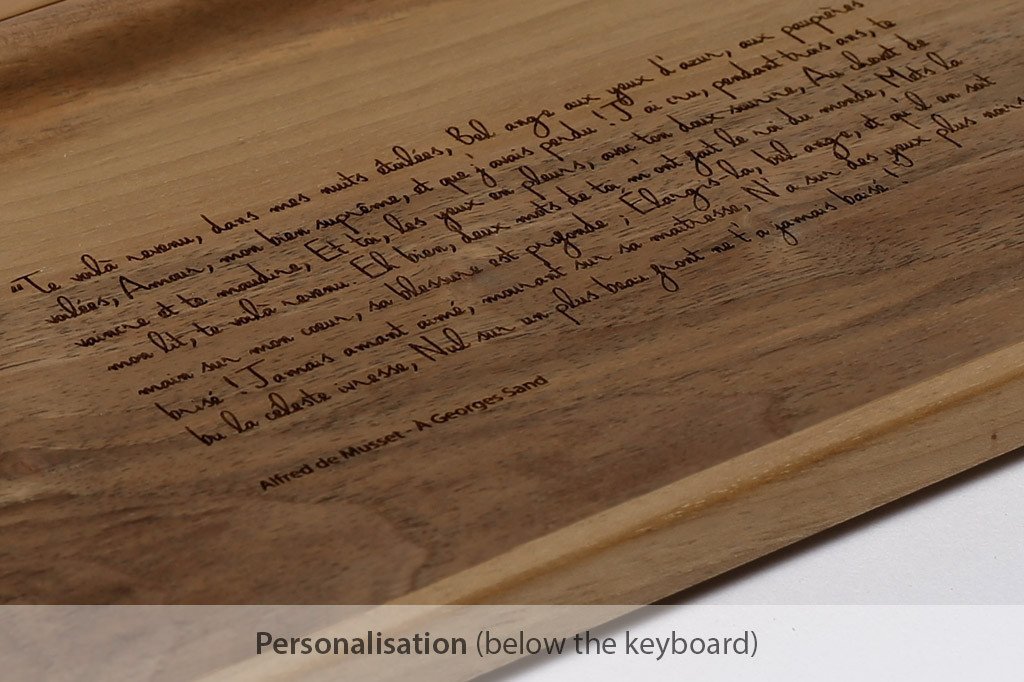 "Te voilà revenu, dans mes nuits étoilées, Bel ange aux yeux d'azur, aux paupières
voilées, Amour, mon bien suprême, et que j'avais perdu ! J'ai cru, pendant trois ans, te
vaincre et te maudire, Et toi, les yeux en pleurs, avec ton doux sourire, Au chevet de
mon lit, te voilà revenu. Eh bien, deux mots de toi m'ont fait le roi du monde, Mets la
main sur mon cœur, sa blessure est profonde ; Élargis-la, bel ange, et qu'il en soit
brisé ! Jamais amant aimé, mourant sur sa maîtresse, N'a sur des yeux plus noirs
bu la céleste ivresse, Nul sur un plus beau front ne t'a jamais baisé !
Alfred de Musset - À Georges Sand
Personalisation (below the keyboard)